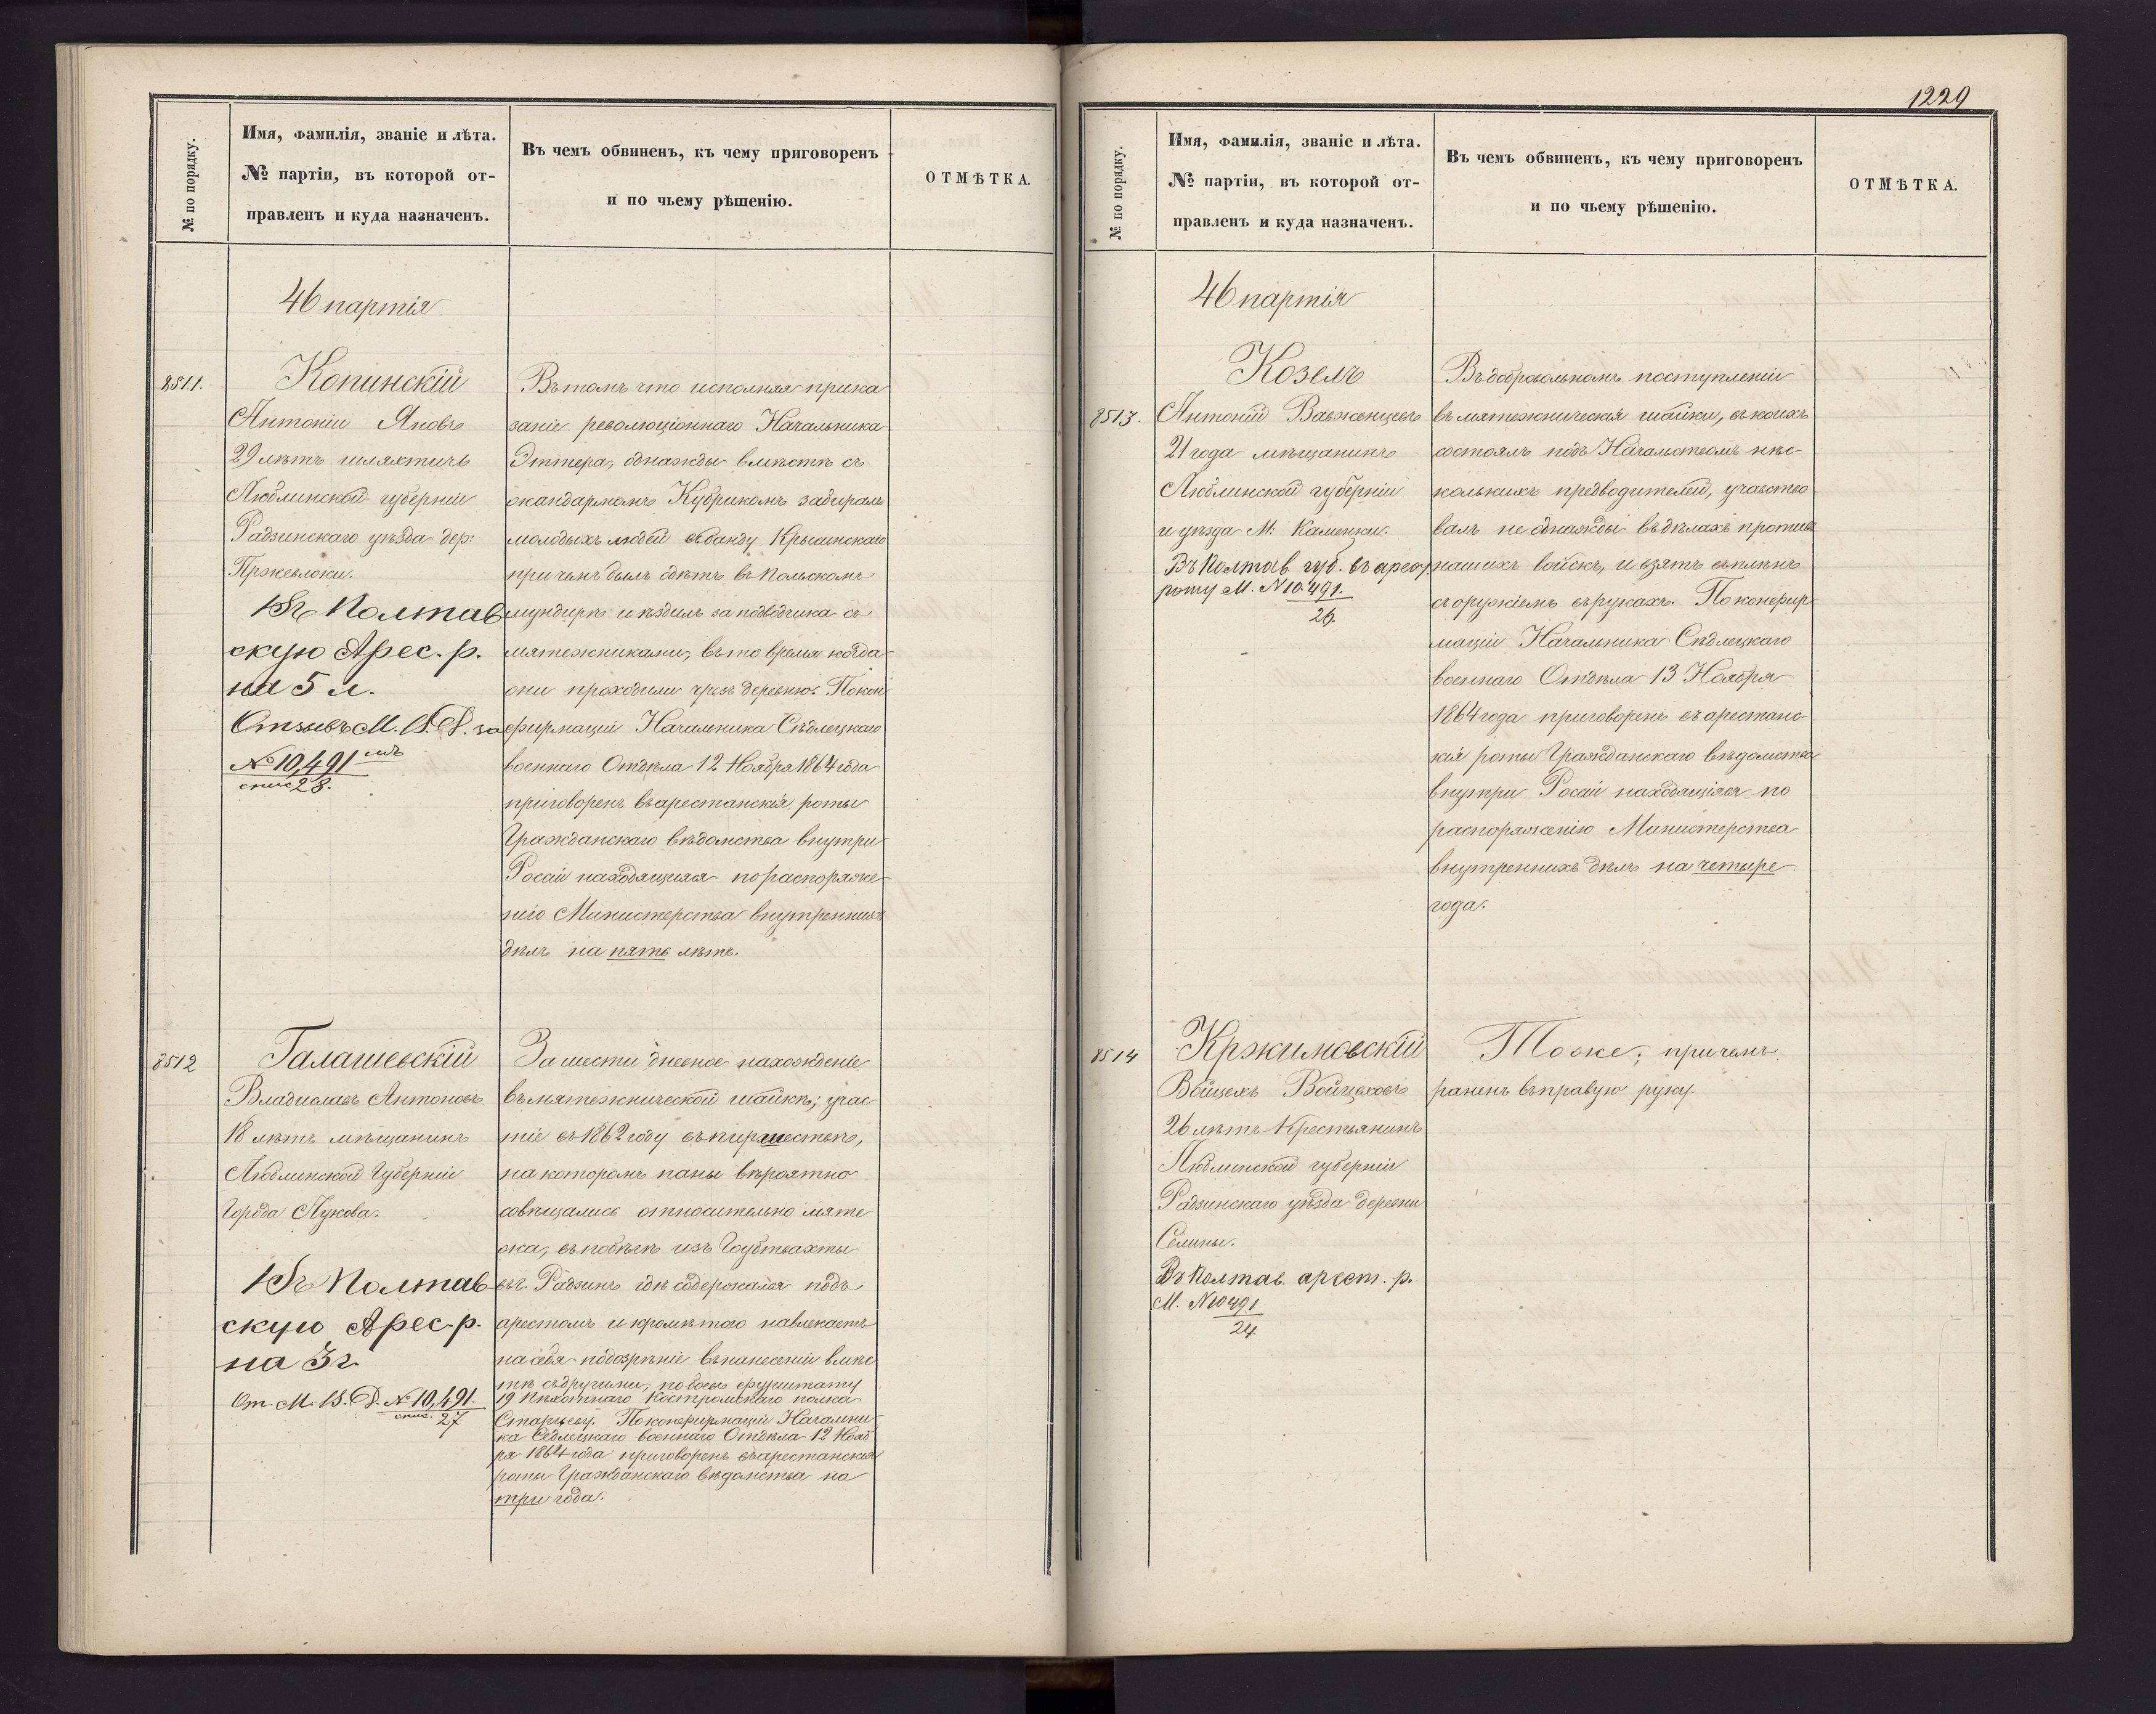 № по порядку.
Имя, фамилія, званіе и лѣта.
№ партіи, въ которой от-
правленъ и куда назначенъ.
Въ чемъ обвиненъ, къ чему приговоренъ
и по чьему рѣшенію.
ОТМѢТКА.
46 партія
8511.
Копинскій
Антоній Яновъ
29 лѣтъ шляхтичъ
Люблинской губерніи
Радзинскаго уѣзда дер:
Пржевлоки.
Въ Полтав
скую Арес. р.
на 5 л.
Отзывъ М. В. Д. за
№ 10,491
спис 28.
Въ томъ что исполняя прика
заніе революціоннаго Начальника
Эттера, однажды вмѣстѣ съ
жандармомъ Кубрикомъ забиралъ
молодыхъ людей въ банду Крысинскаго
причемъ былъ одѣтъ въ польскомъ
мундирѣ и ѣздилъ за подводчика съ
мятежниками, въ то время когда
они проходили чрезъ деревню. По кон
фирмаціи Начальника Сѣдлецкаго
военнаго Отдѣла 12 Ноября 1864 года
приговоренъ въ арестанскія роты
Гражданскаго вѣдомства внутри
Росіи находящияся по распоряже
нію Министерства внутреннихъ
дѣлъ на пять лѣтъ.
8512
Галашевскій
Владиславъ Антоновъ
18 лѣтъ мѣщанинъ
Люблинской Губерніи
Города Лукова.
Въ Полтав
скую Арес. р.
на 3 г.
От. М. В. Д. № 10,491.
спис. 27
За шести дневное нахожденіе
въ мятежнической шайкѣ; учас
тіе въ 1862 году въ пиршествѣ,
на которомъ паны вѣроятно
совѣщались относительно мяте
жа, въ побѣгѣ изъ Гоубтвахты
въ г. Радзинъ гдѣ содержался подъ
арестомъ и кромѣ того навлекаетъ
на себя подозрѣніе въ нанесеніи вмѣс
тѣ съ другими, побоевъ фурштату
19 Пѣхотнаго Костромскаго полка
Старцеву. По конфирмаціи Начальни
ка Седлецкаго военнаго Отдѣла 12 Нояб
ря 1864 года приговоренъ въ арестанскія
роты Гражданскаго вѣдомства на
три года.
1229
№ по порядку.
Имя, фамилія, званіе и лѣта.
№ партіи, въ которой от-
правленъ и куда назначенъ.
Въ чемъ обвиненъ, къ чему приговоренъ
и по чьему рѣшенію.
ОТМѢТКА.
46 партія
8513.
Козелъ
Антоній Вавженцевъ
21 года мѣщанинъ
Люблинской губерніи
и уѣзда М. Каменки.
Въ Полтав. губ. въ арес.
роту М. № 10.491.
26.
Въ добровольномъ поступленіи
въ мятежническія шайки, въ коихъ
состоялъ подъ Начальствомъ нѣс-
колькихъ предводителей, участво
валъ не однажды въ дѣлахъ противъ
нашихъ войскъ, и взятъ въ плѣнъ
съ оружіемъ въ рукахъ. По конфир
маціи Начальника Сѣдлецкаго
военнаго Отдѣла 13 Ноября
1864 года приговоренъ въ арестанс-
кія роты Гражданскаго вѣдомства
внутри Росіи находящіяся по
распоряженію Министерства
внутреннихъ дѣлъ на четыре
года.
8514
Кржимовскій
Войцехъ Войцеховъ
26 лѣтъ Крестьянинъ
Люблинской губерніи
Радзинскаго уѣзда деревни
Селины.
Въ Полтав. арест. р.
М. № 10491
24
Тоже; причемъ
раненъ въ правую руку.